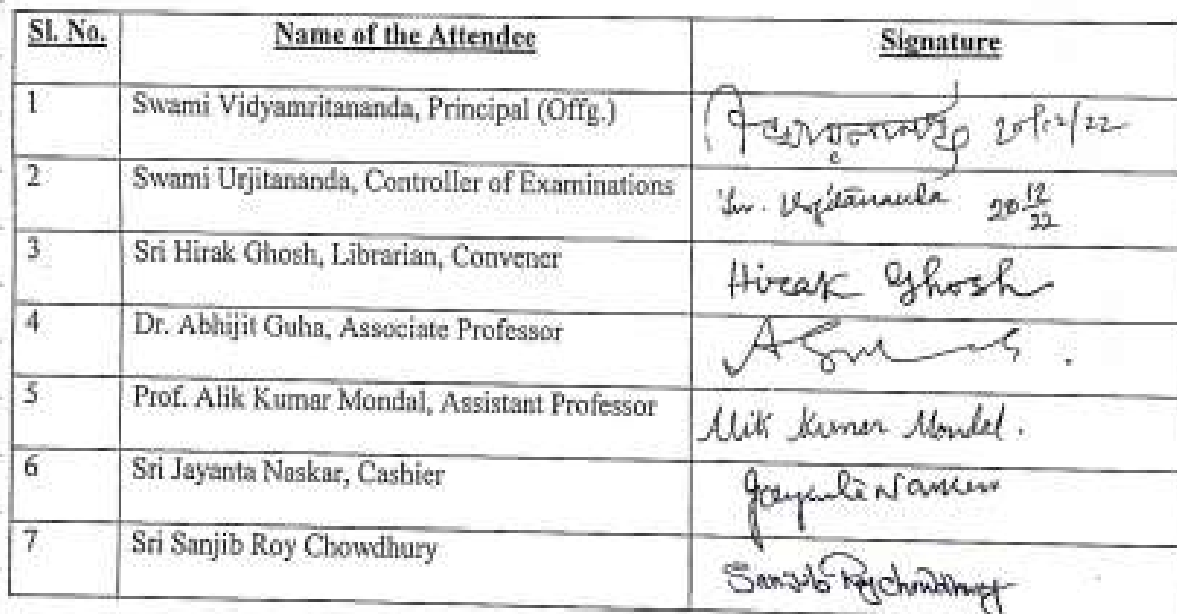 Sl. No. Name of the Attendee Signature
1 Swami Vidyamritananda, Principal (Offg.) 20/12/22
2 Swami Urjitananda, Controller of Examinations Sw. Urjitananda 20 12/22
3 Sri Hirak Ghosh, Librarian, Convener Hirak Ghosh
4 Dr. Abhijit Guha, Associate Professor
5 Prof. Alik Kumar Mondal, Assistant Professor Alik Kumar Mondal.
6 Sri Jayanta Naskar, Cashier Jayanta Naskar
7 Sri Sanjib Roy Chowdhury Sanjib Roy Chowdhury